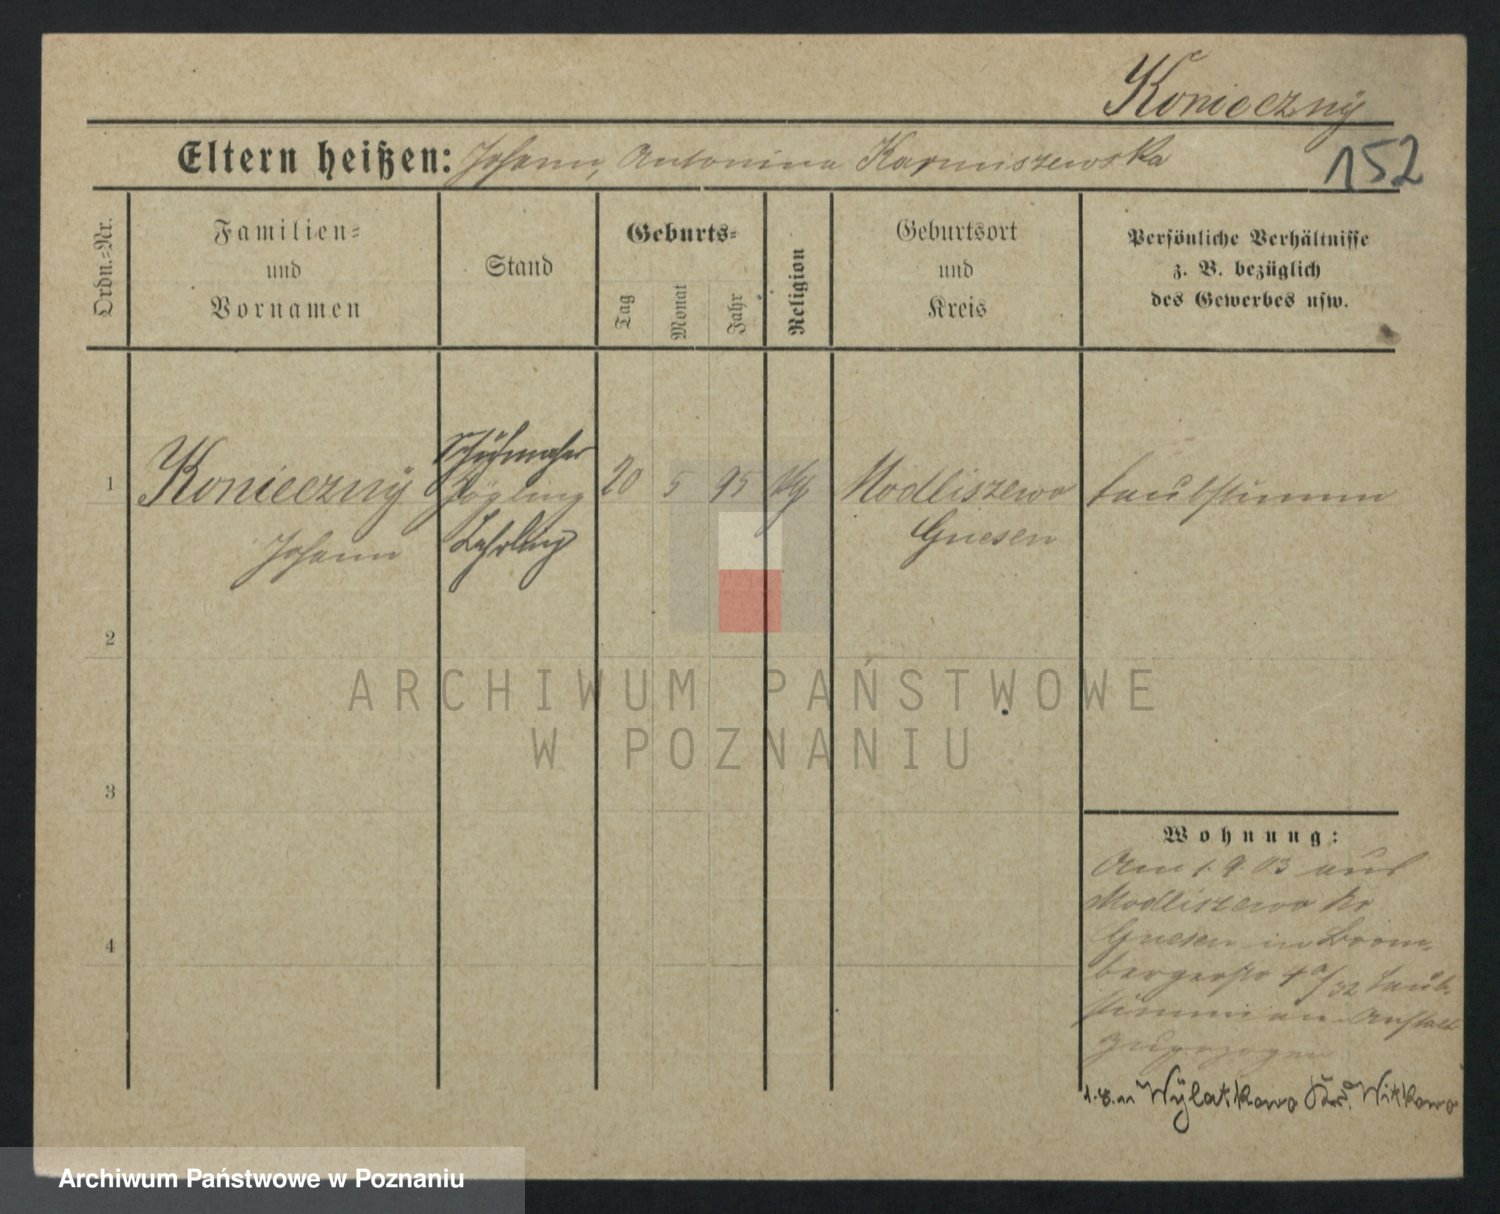 Konieczny
Eltern heißen: Johann, Antonina Karmiszewska
152
Ordn.-Nr.
Familien-
und
Vornamen
Stand
Geburts-
Tag
Monat
Jahr
Religion
Geburtsort
und
Kreis
Persönliche Verhältnisse
z. B. bezüglich
des Gewerbes usw.
Schuhmacher
1 Konieczny Zögling 20 5 95 Modliszewo taubstumm
Johann Lehrling Gnesen
2
ARCHIWUM PAŃSTWOWE
W POZNANIU
3
4
Wohnung:
Am 1.9.03 aus
Modliszewo Kr
Gnesen in Brom-
bergerstr 4a/32 Taub-
stummen Anstalt
zugezogen
Wylatkowo Kr. Witkowo
Archiwum Państwowe w Poznaniu